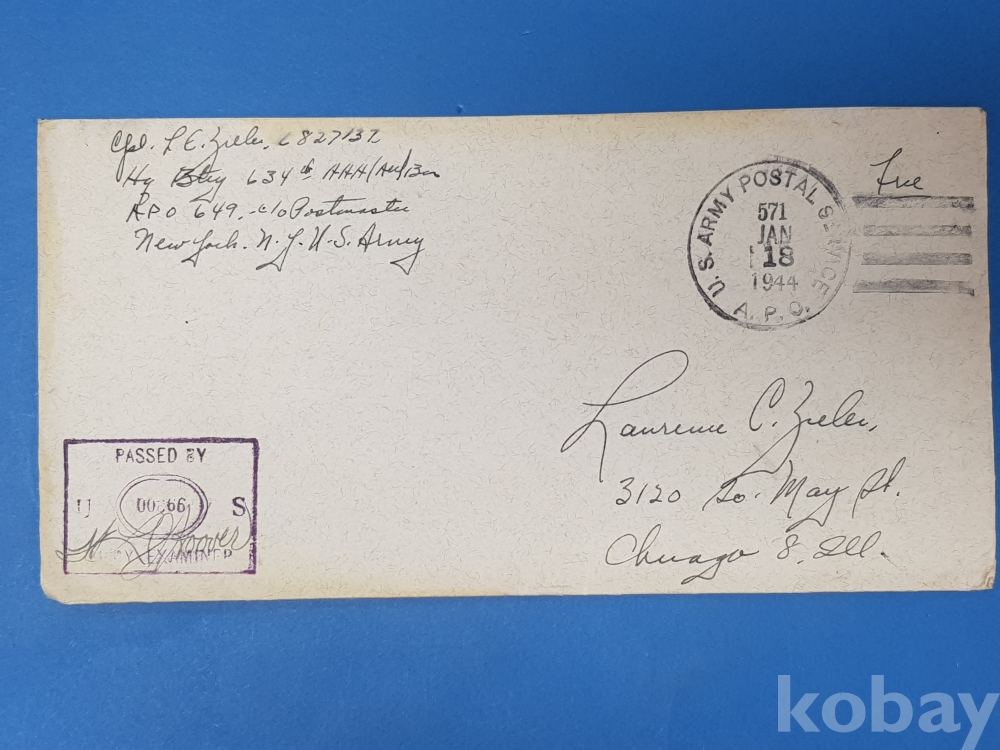 Cpl. L C. Zieler, 6827137
Hq Btry 634th AAA (AW) Bn
APO 649, c/o Postmaster
New York. N.Y. U.S. Army
Free
U.S. ARMY POSTAL SERVICE
571
JAN
18
1944
A.P.O.
Laurence C. Zieler,
3120 So. May St.
Chicago 8. Ill.
PASSED BY
U S
Hoover
ARMY EXAMINER
kobay